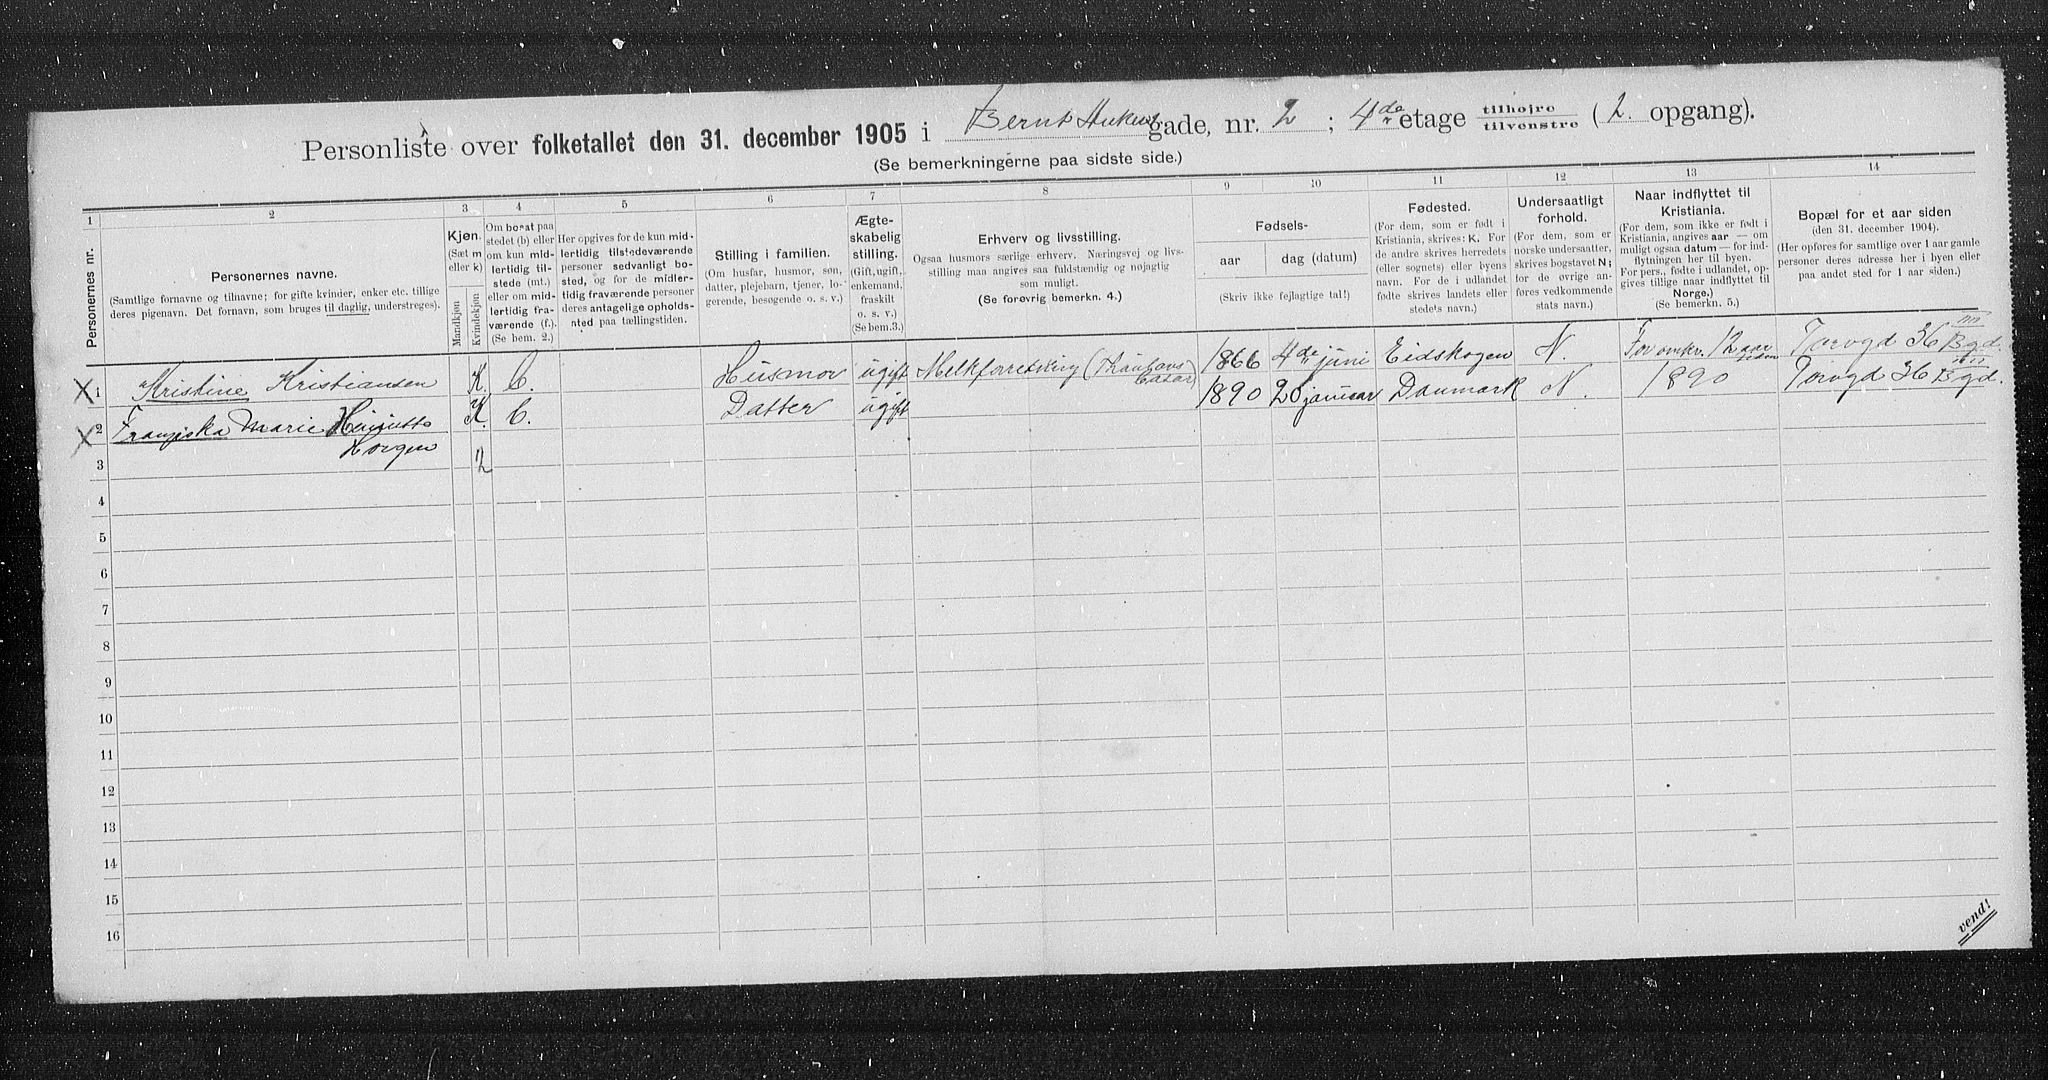 Personliste over folketallet den 31. december 1905 i Bernt Ankers gade, nr. 2 ; 4de etage tilhøjre tilvenstre ( 2. opgang).
(Se bemerkningerne paa sidste side.)
1 2 3 4 5 6 7 8 9 10 11 12 13 14
Personernes nr.
Personernes navne.
(Samtlige fornavne og tilnavne; for gifte kvinder, enker etc. tillige
deres pigenavn. Det fornavn, som bruges til daglig, understreges).
Kjøn.
(Sæt m
eller k)
Mandkjøn
Kvindekjøn.
Om bosat paa
stedet (b) eller
om kun mid-
lertidig til-
stede (mt.)
eller om mid-
lertidig fra-
værende (f.).
(Se bem. 2.)
Her opgives for de kun mid-
lertidig tilstedeværende
personer sedvanlig bo-
sted, og for de midler-
tidig fraværende personer
deres antagelige opholds-
sted paa tællingstiden.
Stilling i familien.
(Om husfar, husmor, søn,
datter, plejebarn, tjener, lo-
gerende, besøgende o. s. v.)
Ægte-
skabelig
stilling.
(Gift, ugift,
enkemand,
fraskilt
o. s. v.)
(Se bem.3.)
Erhverv og livsstilling.
Ogsaa husmors særlige erhverv. Næringsvej og livs-
stilling maa angives saa fuldstændig og nøjagtig
som muligt.
(Se forøvrig bemerkn. 4.)
Fødsels-
aar
dag (datum)
(Skriv ikke fejlagtige tal!)
Fødested.
(For dem, som er født i
Kristiania, skrives: K. For
de andre skrives herredets
(eller sognets) eller byens
navn. For de i udlandet
fødte skrives landets eller
stedets navn.)
Undersaatligt
forhold.
(For dem, som er
norske undersaatter,
skrives bogstavet N;
for de øvrige an-
føres vedkommende
stats navn.)
Naar indflyttet til
Kristiania.
(For dem, som ikke er født i
Kristiania, angives aar — om
muligt ogsaa datum — for ind-
flytningen her til byen.
For pers., fødte i udlandet, op-
gives tillige naar indflyttet til
Norge.)
(Se bemerkn. 5.)
Bopæl for et aar siden
(den 31. december 1904).
(Her opføres for samtlige over 1 aar gamle
personer deres adresse her i byen eller
paa andet sted for 1 aar siden.)
X 1 Kristine Kristiansen K. b. Husmor ugift Melkforretning 1866 4de juni Eidskogen N. For omkr. 12 aar siden Torvgd 36 III Bgd.
X 2 Franziska Marie K. b. Datter ugift 1890 20 januar Danmark N. 1890 Torvgd 36 III Bgd.
3 Horgen 2
4
5
6
7
8
9
10
11
12
13
14
15
16
vend!